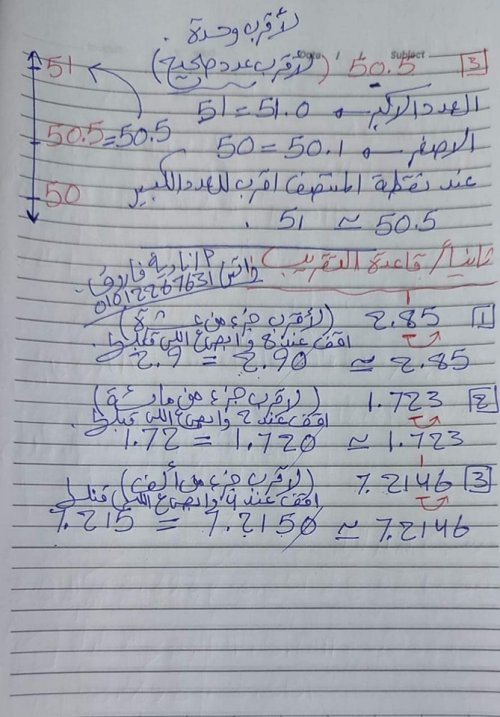 لأقرب وحدة.
3 50.5 (لاقرب عدد صحيح)
Date / / Subject
51
العدد الاكبر ← 51.0 = 51
50.5 = 50.5
الاصغر ← 50.1 = 50
50
عند نقطة المنتصف اقرب للعدد الكبير
50.5 ≃ 51.
ثانيا / قاعدة التقريب
م / نادية فاروق
واتس / 01012267631
1 2.85 (لأقرب جزء من عشرة)
اقف عند 8 وابص ع اللي قبلها.
2.85 ≃ 2.90 = 2.9
2 1.723 (لاقرب جزء من مائة)
اقف عند 2 وابص ع اللي قبلها.
1.723 ≃ 1.720 = 1.72
3 7.2146 (لاقرب جزء من ألف)
اقف عند 4 وابص ع اللي قبلها
7.2146 ≃ 7.2150 = 7.215